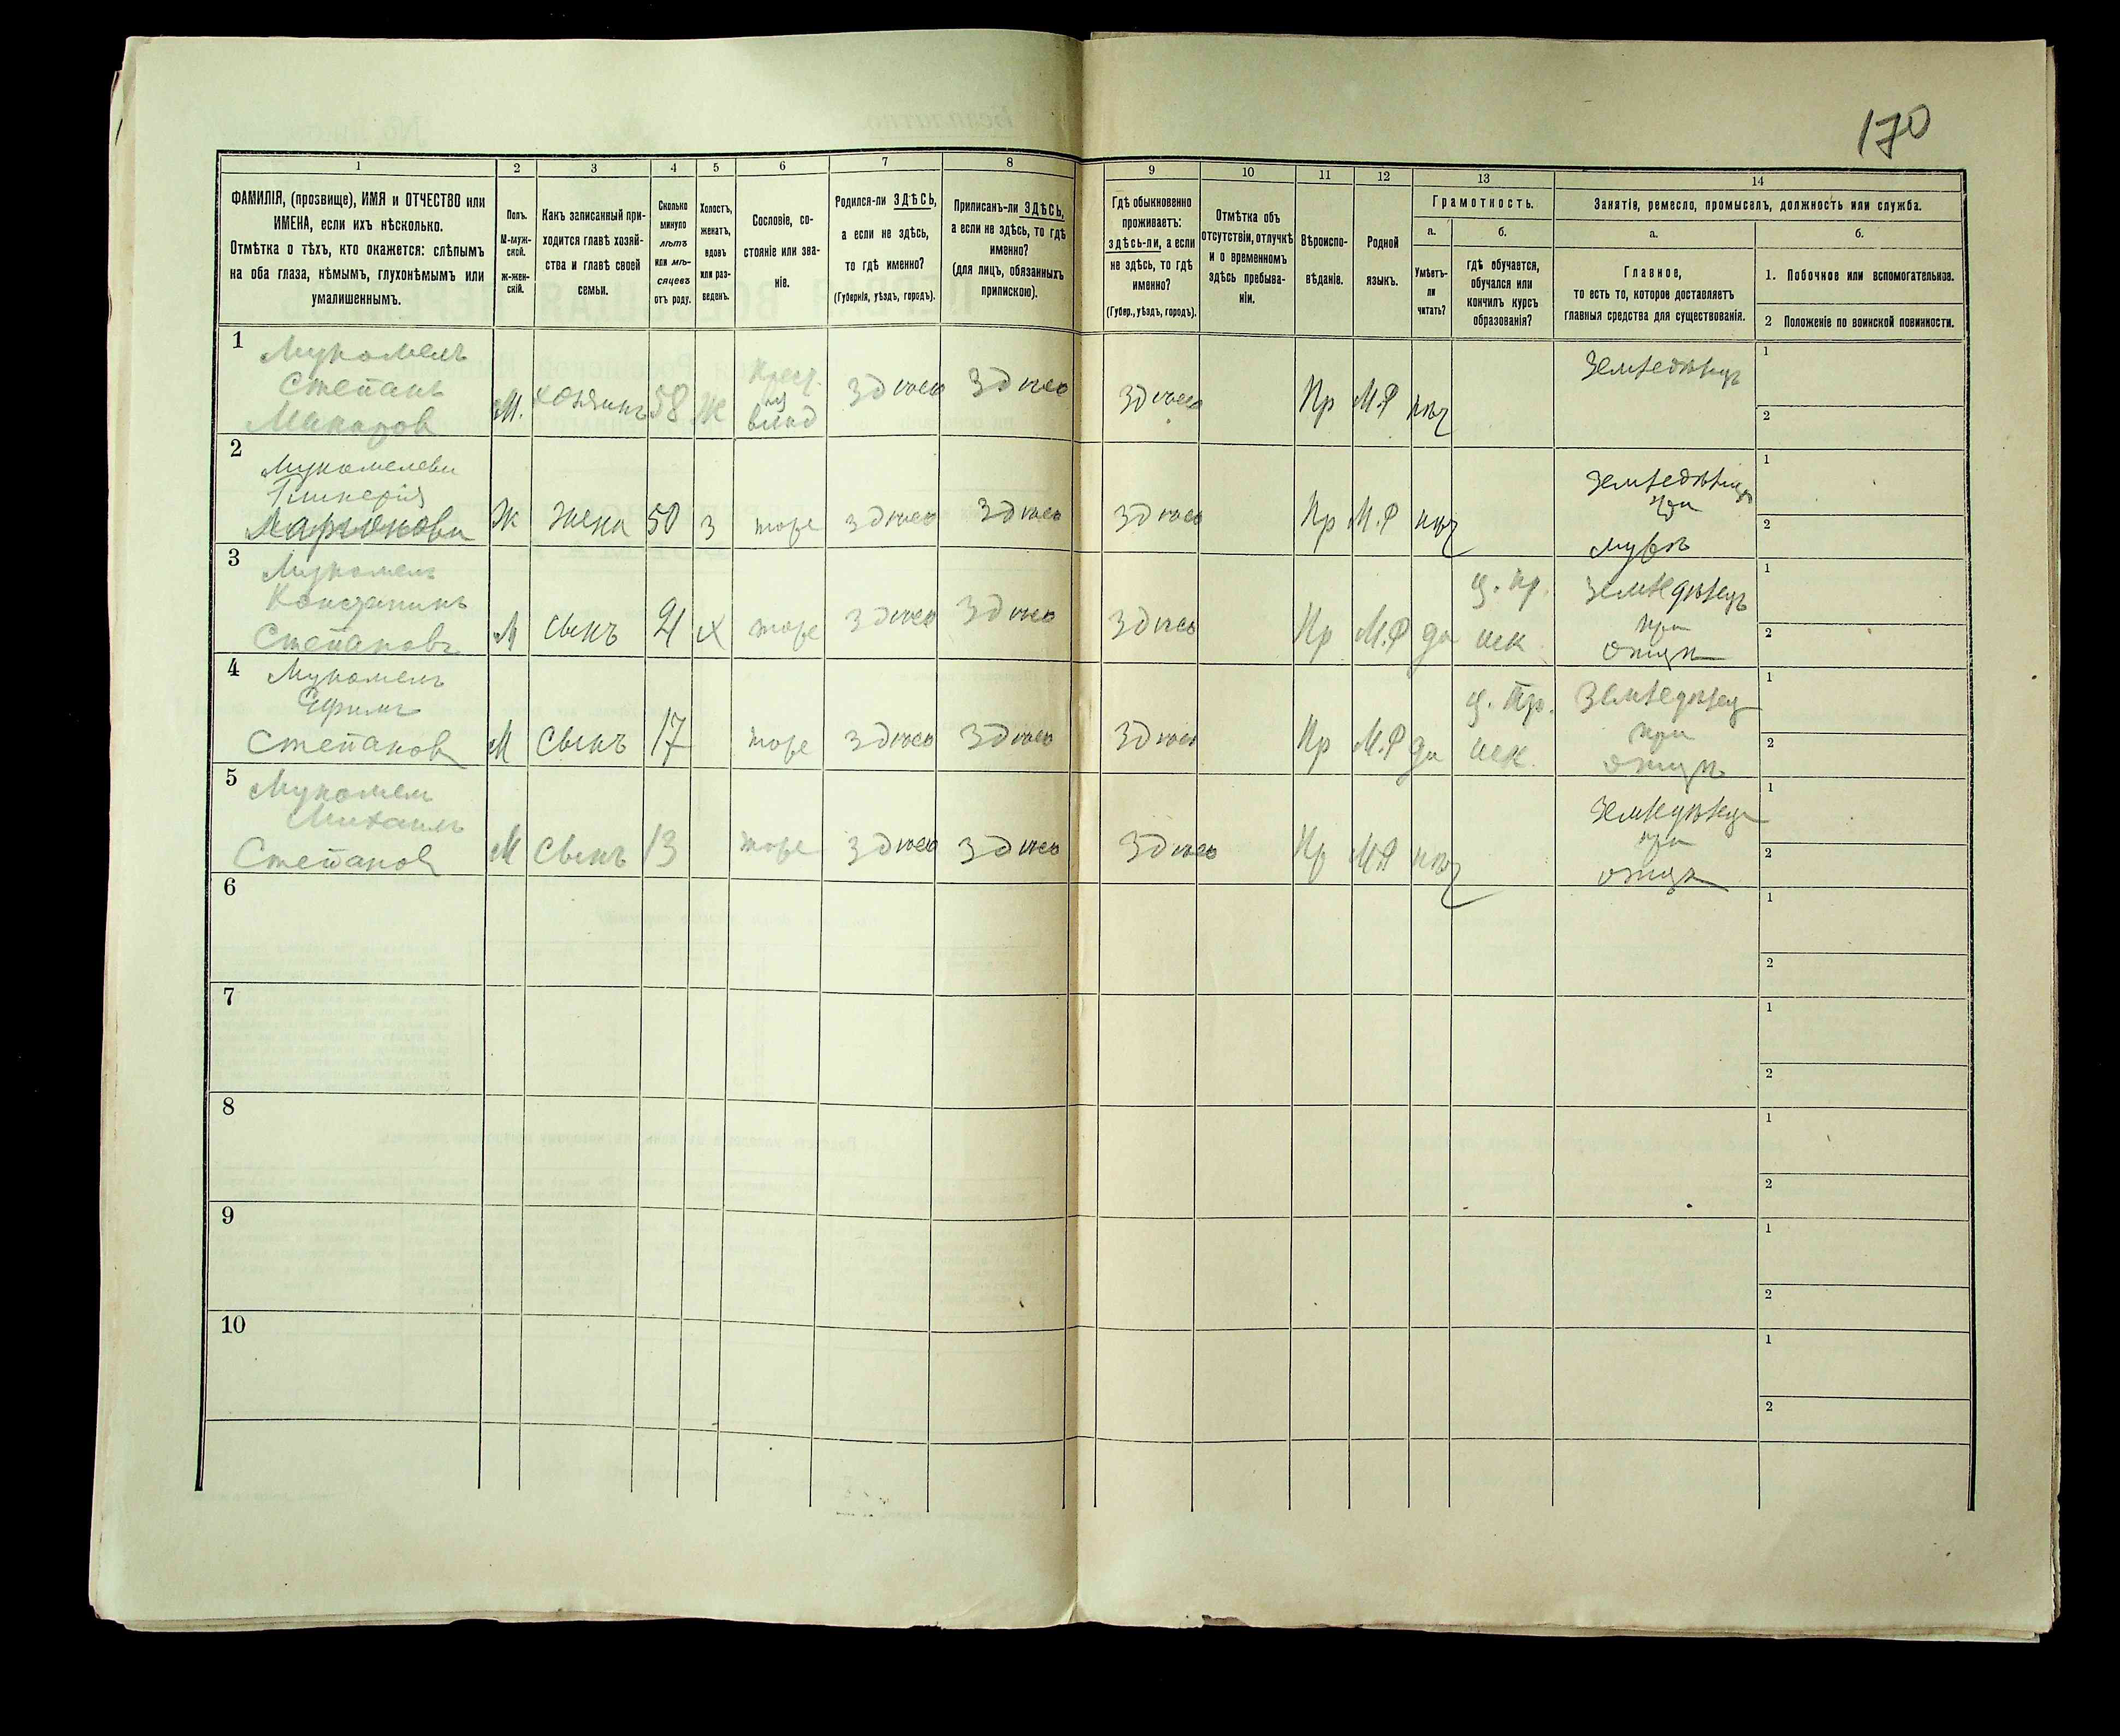 170
1 2 3 4 5 6 7 8 9 10 11 12 13 14
ФАМИЛІЯ, (прозвище), ИМЯ и ОТЧЕСТВО или
ИМЕНА, если ихъ нѣсколько.
Отмѣтка о тѣхъ, кто окажется: слѣпымъ
на оба глаза, нѣмымъ, глухонѣмымъ или
умалишеннымъ.
Полъ.
М-муж-
ской.
Ж-жен-
скій.
Какъ записанный при-
ходится главѣ хозяй-
ства и главѣ своей
семьи.
Сколько
минуло
лѣтъ
или мѣ-
сяцевъ
отъ роду.
Холостъ,
женатъ,
вдовъ
или раз-
веденъ.
Сословіе, со-
стояніе или зва-
ніе.
Родился-ли ЗДѢСЬ,
а если не здѣсь,
то гдѣ именно?
(Губернія, уѣздъ, городъ).
Приписанъ-ли ЗДѢСЬ,
а если не здѣсь, то гдѣ
именно?
(для лицъ, обязанныхъ
припискою).
Гдѣ обыкновенно
проживаетъ:
здѣсь-ли, а если
не здѣсь, то гдѣ
именно?
(Губер., уѣздъ, городъ).
Отмѣтка объ
отсутствіи, отлучкѣ
и о временномъ
здѣсь пребыва-
ніи.
Вѣроиспо-
вѣданіе.
Родной
языкъ.
Грамотность.
а.
Умѣетъ-
ли
читать?
б.
гдѣ обучается,
обучался или
кончилъ курсъ
образованія?
Занятіе, ремесло, промыселъ, должность или служба.
а.
Главное,
то есть то, которое доставляетъ
главныя средства для существованія.
б.
1. Побочное или вспомогательное.
2 Положеніе по воинской повинности.
1 Мукомелъ
Степанъ
Макаров
М. хозяинъ 58 Ж
Крест.
из
влад
здѣсь здѣсь здѣсь Пр М.Р нѣт
Земледѣлец
1
2
2
Гликерія
Ж жена 50 З тоже здѣсь здѣсь здѣсь Пр М.Р нѣт
Земледѣлец
при
мужѣ
1
2
3 Мукомелъ
Константинъ
Степановъ
М сынъ 21 Х тоже здѣсь здѣсь здѣсь Пр М.Р да
ц. пр.
шк.
Земледѣлецъ
при
отцѣ
1
2
4 Мукомелъ
Ефимъ
Степанов
М сынъ 17 тоже здѣсь здѣсь здѣсь Пр М.Р да
ц. пр.
шк.
Земледѣлец
при
отцѣ
1
2
5 Мукомел
Михаилъ
Степанов
М сынъ 13 тоже здѣсь здѣсь здѣсь Пр М.Р нѣт
Земледѣлец
при
отцѣ
1
2
6
1
2
7
1
2
8
1
2
9
1
2
10
1
2